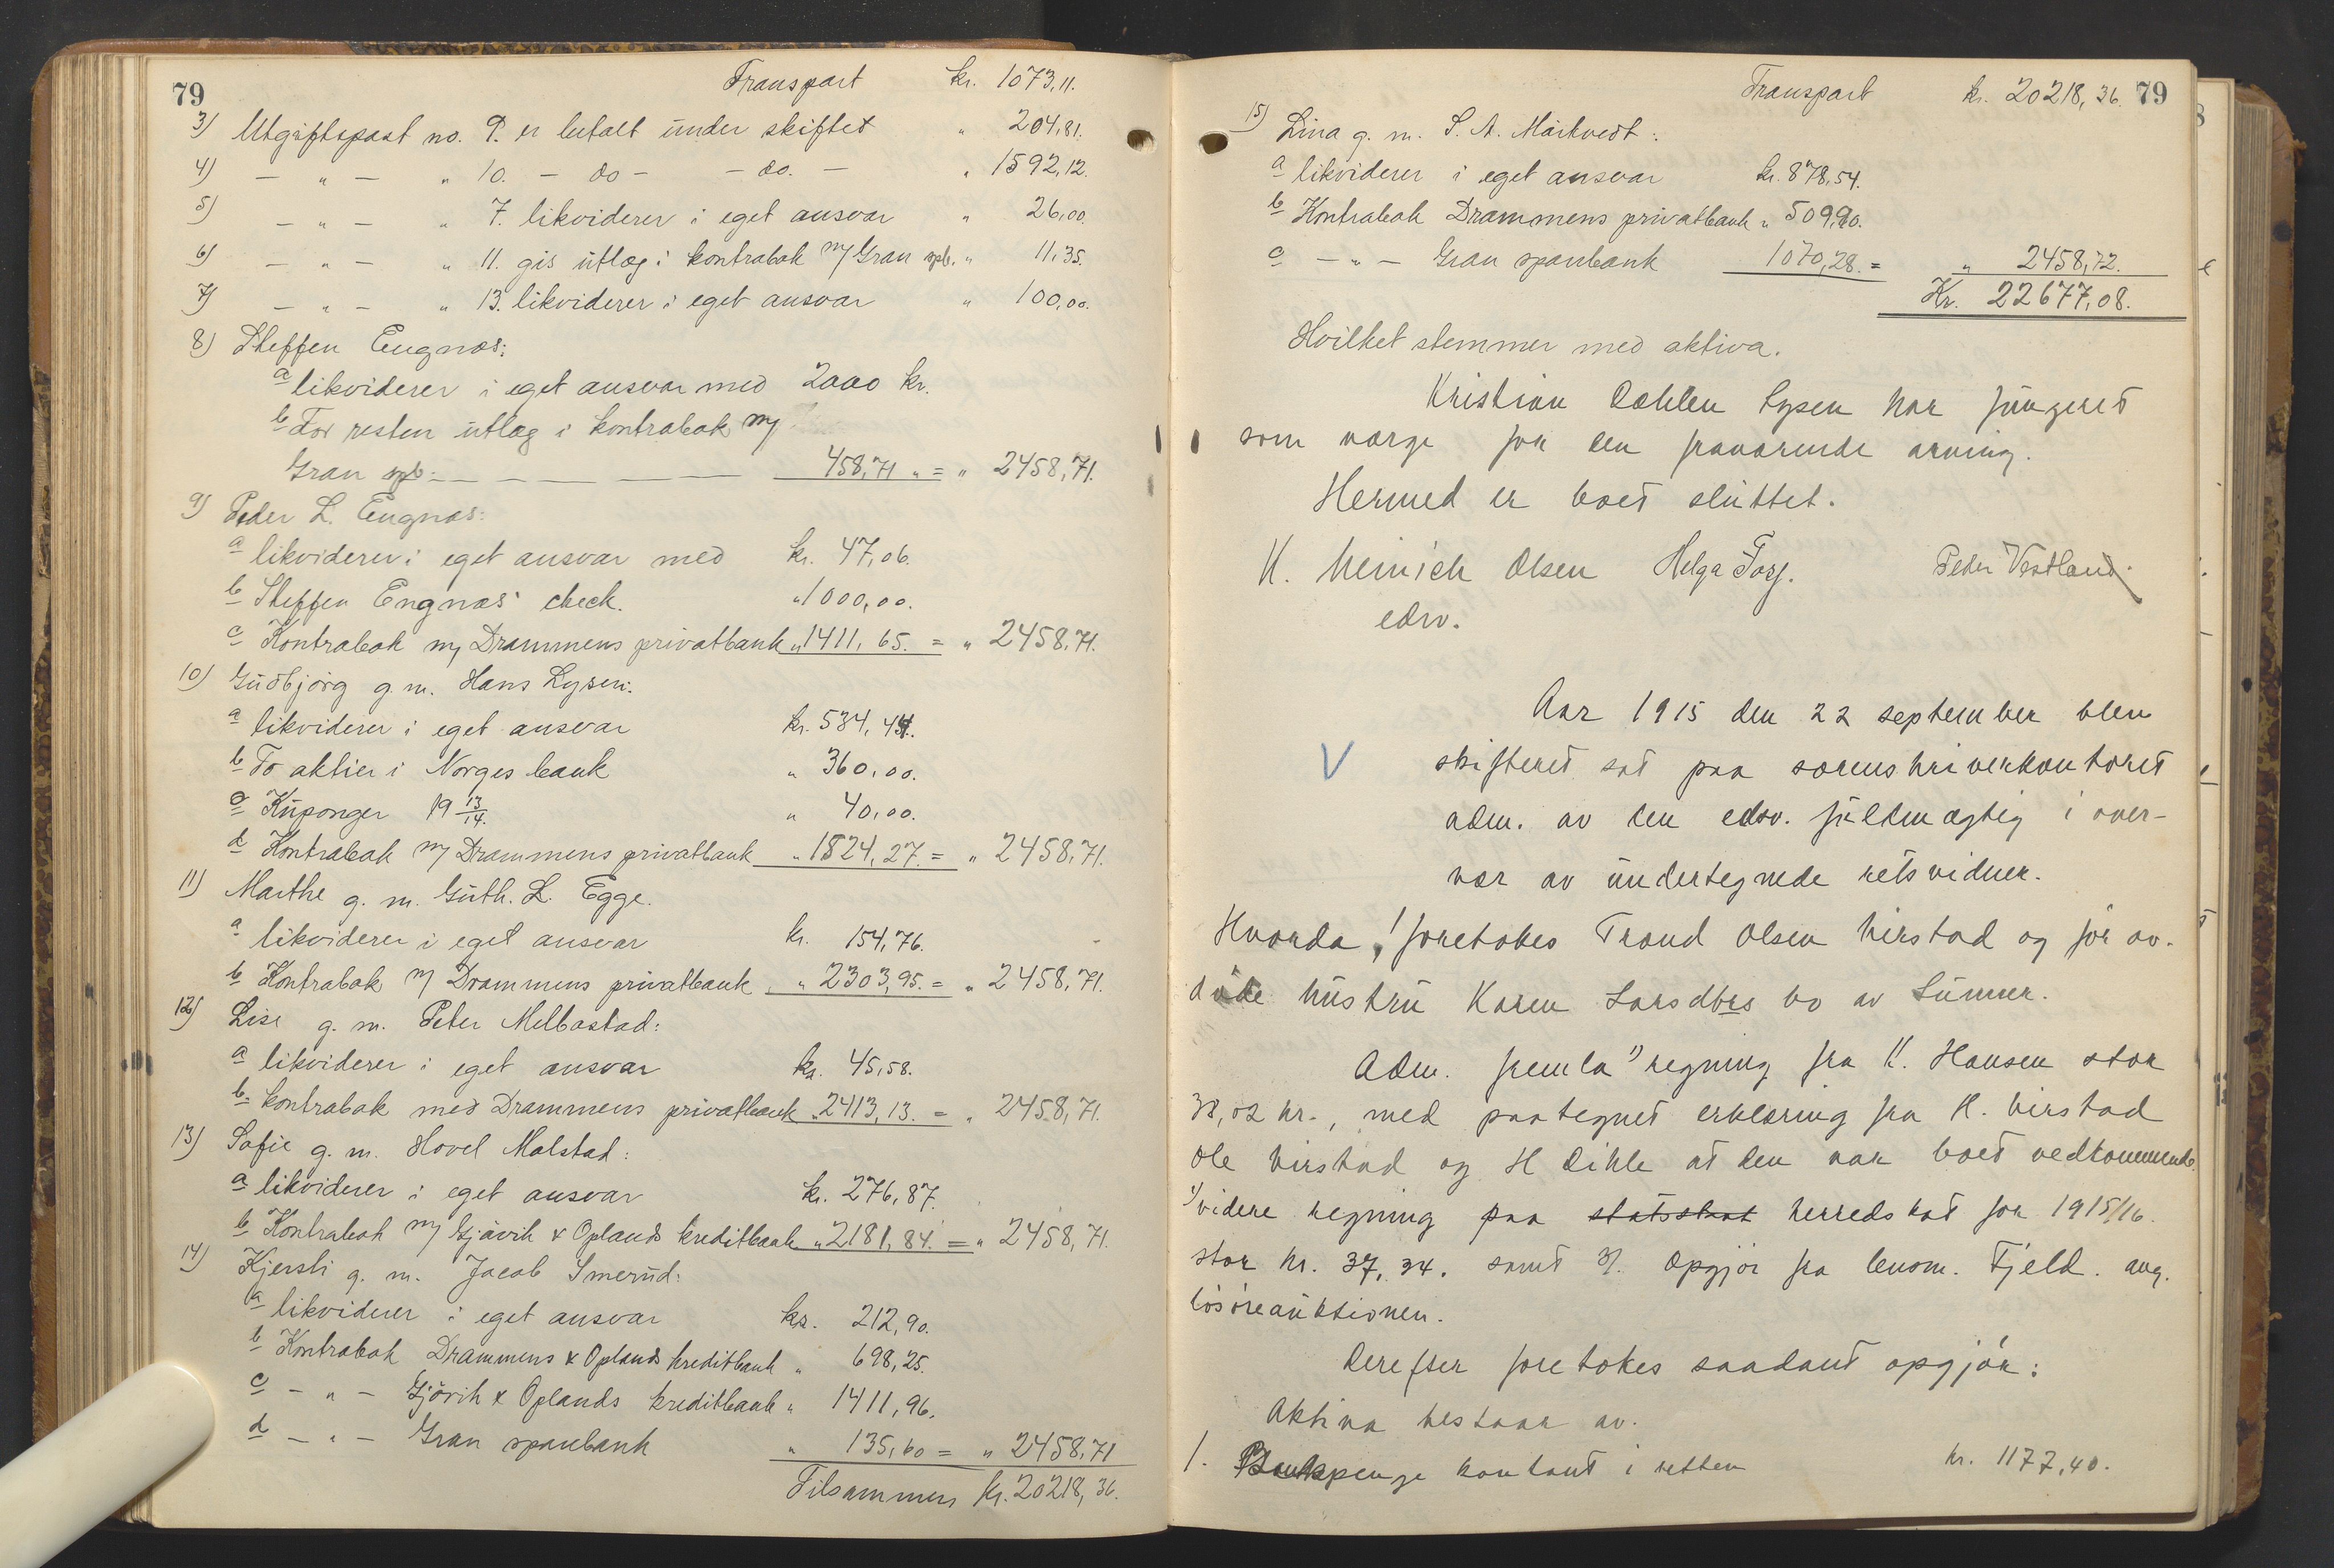 79
Transport kr. 1073,11.
3) Utgiftspost no. 9. er betalt under skiftet " 204,81.
4) — " — " 10. — do — — do. — " 1592,12.
5) — " — " 7. likviderer i eget ansvar " 26,00.
6) — " — " 11. gis utlæg i kontrabok m/ Gran spb. " 11,35.
7) — " — " 13. likviderer i eget ansvar " 100,00.
8) Steffen Engnæs:
a likviderer i eget ansvar med 2000 kr.
b For resten utlæg i kontrabok m/
Gran spb. — — — — — 458,71 " = " 2458,71.
9) Peder L. Engnæs:
a likviderer i eget ansvar med kr. 47,06.
b Steffen Engnæs' check. " 1000,00.
c Kontrabok m/ Drammens privatbank " 1411,65. = " 2458,71.
10) Gudbjørg g. m. Hans Lysen:
a likviderer i eget ansvar kr. 534,44.
b To aktier i Norges bank " 360,00.
c Kuponger 19 13/14. " 40,00.
d Kontrabok m/ Drammens privatbank " 1524,27. = " 2458,71.
11) Marthe g. m. Guth. L. Egge.
a likviderer i eget ansvar kr. 154,76.
b Kontrabok m/ Drammens privatbank " 2303,95. = " 2458,71.
12) Lise g. m. Peter Melbostad:
a likviderer i eget ansvar kr. 45,58.
b kontrabok med Drammens privatbank " 2413,13. = " 2458,71.
13) Sofie g. m. Hovel Molstad:
a likviderer i eget ansvar kr. 276,87.
b Kontrabok m/ Gjøvik & Oplands kreditbank " 2181,84. = " 2458,71.
14) Kjersti g. m. Jacob Smerud:
a likviderer i eget ansvar kr. 212,90.
b Kontrabok Drammens & Oplands kreditbank " 698,25.
c — " — Gjøvik & Oplands kreditbank " 1411,96.
d — " — Gran sparebank " 135,60 = " 2458,71
Tilsammen kr. 20218,36.
Transport kr. 20218,36. 79
15) Lina g. m. S. A. Markvedt:
a likviderer i eget ansvar kr. 878,54.
b Kontrabok Drammens privatbank " 509,90.
c — " — Gran sparebank 1070,28. = " 2458,72.
Kr. 22677,08.
Hvilket stemmer med aktiva.
Kristian Dæhlen Lysen har fungeret
som værge for den fraværende arving.
Hermed er boet sluttet.
K. Meinich Olsen Helga Torg. Peder Vestland.
edsv.
Aar 1915 den 22 september blev
V skifteret sat paa sorenskriverkontoret
adm. av den edsv. fuldmægtig i over-
vær av undertegnede retsvidner.
Hvorda, foretokes Trond Olsen Kirstad og før av-
døde hustru Karen Larsdtrs bo av Lunner.
Adm. fremla 1) regning fra K. Hansen stor
38,02 kr., med paategnet erklæring fra K. Kirstad
Ole Kirstad og H Dihle at den var boet vedkommende.
2/ videre regning paa statsskat herredskat for 1915/16.
stor kr. 37,34. samt 3/. Opgjør fra lensm. Fjeld. ang.
løsøreauktionen.
Derefter foretokes saadant opgjør:
Aktiva bestaar av.
1. Bankpenge kontant i retten kr. 1177,40.